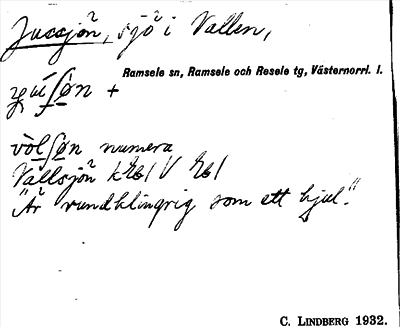 Jussjön, sjö i Vallen,
Ramsele sn, Ramsele och Resele tg, Västernorrl. l.
völʃøn numera
Vällsjön
"Är rundklingrig som ett hjul."
C. LINDBERG 1932.